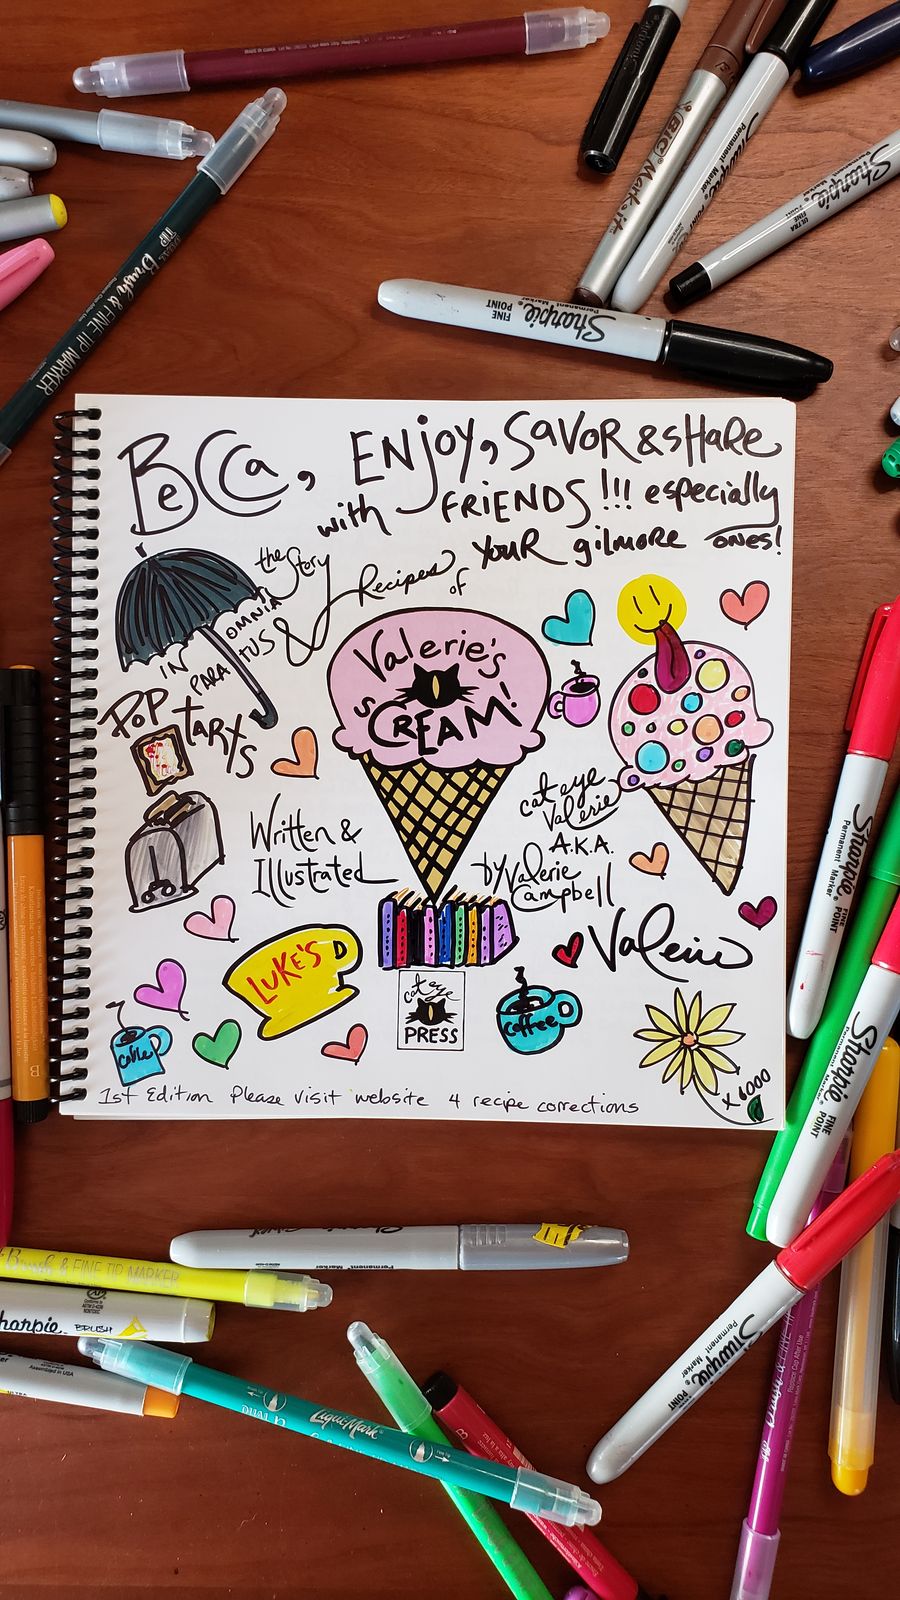 BIC Mark-it
Sharpie
Permanent Marker
Sharpie
Permanent Marker
ULTRA FINE POINT
Brush & FINE TIP MARKER
Sharpie
Permanent Marker
FINE POINT
BeCCa, ENjoy, SaVOR & sHaRe
with FRIENDS!!! especially
YOUR gilmore ones!
the Story
& Recipes of
Valerie's
sCREAM!
IN OMNIA
PARATUS
POP tarts
Written &
Illustrated
by Valerie
Campbell
A.K.A.
cat eye
Valerie
Valerie
LUKE'S
coffee
cat eye
PRESS
x 6000
1st Edition Please visit website 4 recipe corrections
Sharpie
Permanent Marker
FINE POINT
Sharpie
Permanent Marker
FINE POINT
Permanent Marker
Brush & FINE TIP MARKER
Sharpie
BRUSH
Assembled in USA
Liqui-Mark
Sharpie
Permanent Marker
FINE POINT